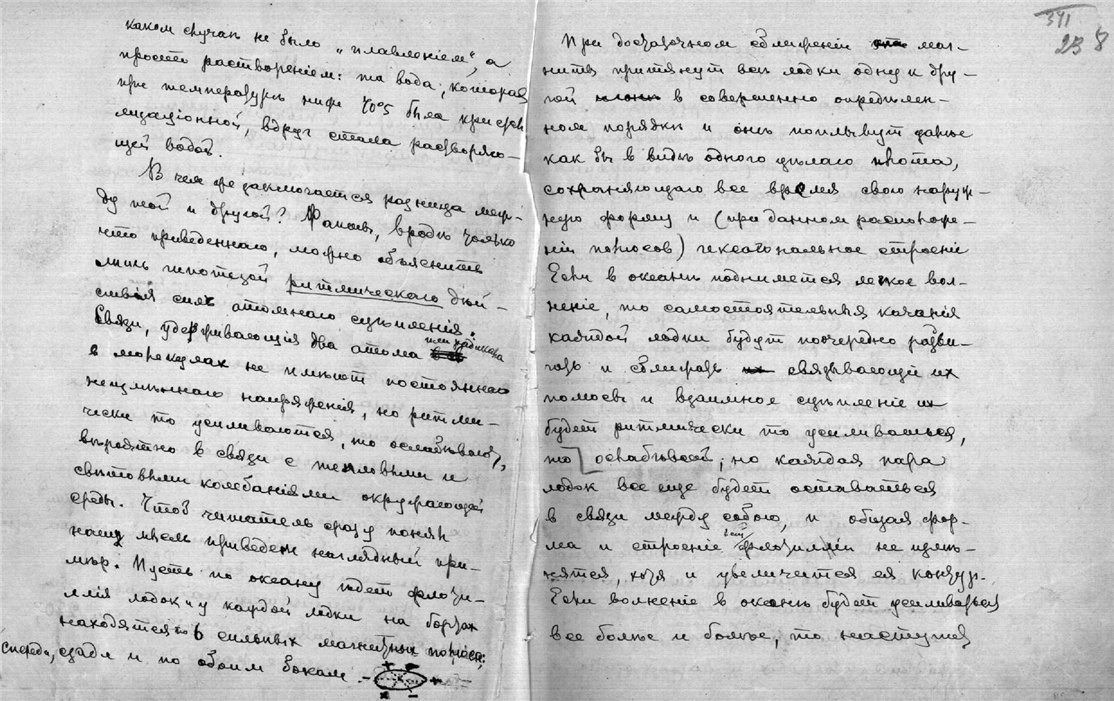 каком случаѣ не было „плавленіем“, а
просто раствореніем: та вода, которая
при температурѣ ниже 40°5 была кристал-
лизаціонной, вдруг стала растворяю-
щей водой.
В чем же заключается разница меж-
ду той и другой? Факты, вродѣ только
что приведеннаго, можно объяснить
лишь гипотезой ритмическаго дѣй-
ствія силы атомнаго сцѣпленія.
Связи, удерживающія два атома или радикала
в молекулах не имѣют постояннаго
неизмѣннаго напряженія, но ритми-
чески то усиливаются, то ослабѣвают,
вѣроятно в связи с тепловыми и
свѣтовыми колебаніями окружающей
среды. Чтоб читатель сразу понял
нашу мысль приведем наглядный при-
мѣр. Пусть по океану идет флоти-
лія лодок и у каждой лодки на бортах
находятся по 6 сильных магнитных полюса;
спереди, сзади и по обоим бокам.
- + - + - +
341
238
При достаточном сближеніи маг-
ниты притянут всѣ лодки одну к дру-
гой в совершенно опредѣлен-
ном порядкѣ и онѣ поплывут далѣе
как бы в видѣ одного цѣлаго плота,
сохраняющаго все время свою наруж-
ную форму и (при данном расположе-
ніи полюсов) гексагональное строеніе
Если в океанѣ поднимется легкое вол-
неніе, то самостоятельныя качанія
каждой лодки будут поочередно раздви-
гать и сближать связывающіе их
полюсы и взаимное сцѣпленіе их
будет ритмически то усиливаться,
то ослабѣвать; но каждая пара
лодок все еще будет оставаться
в связи между собою, и общая фор-
ма и строеніе всей флотиліи не измѣ-
нятся, хотя и увеличится ея контур.
Если волненіе в океанѣ будет усиливаться
все болѣе и болѣе, то наступит